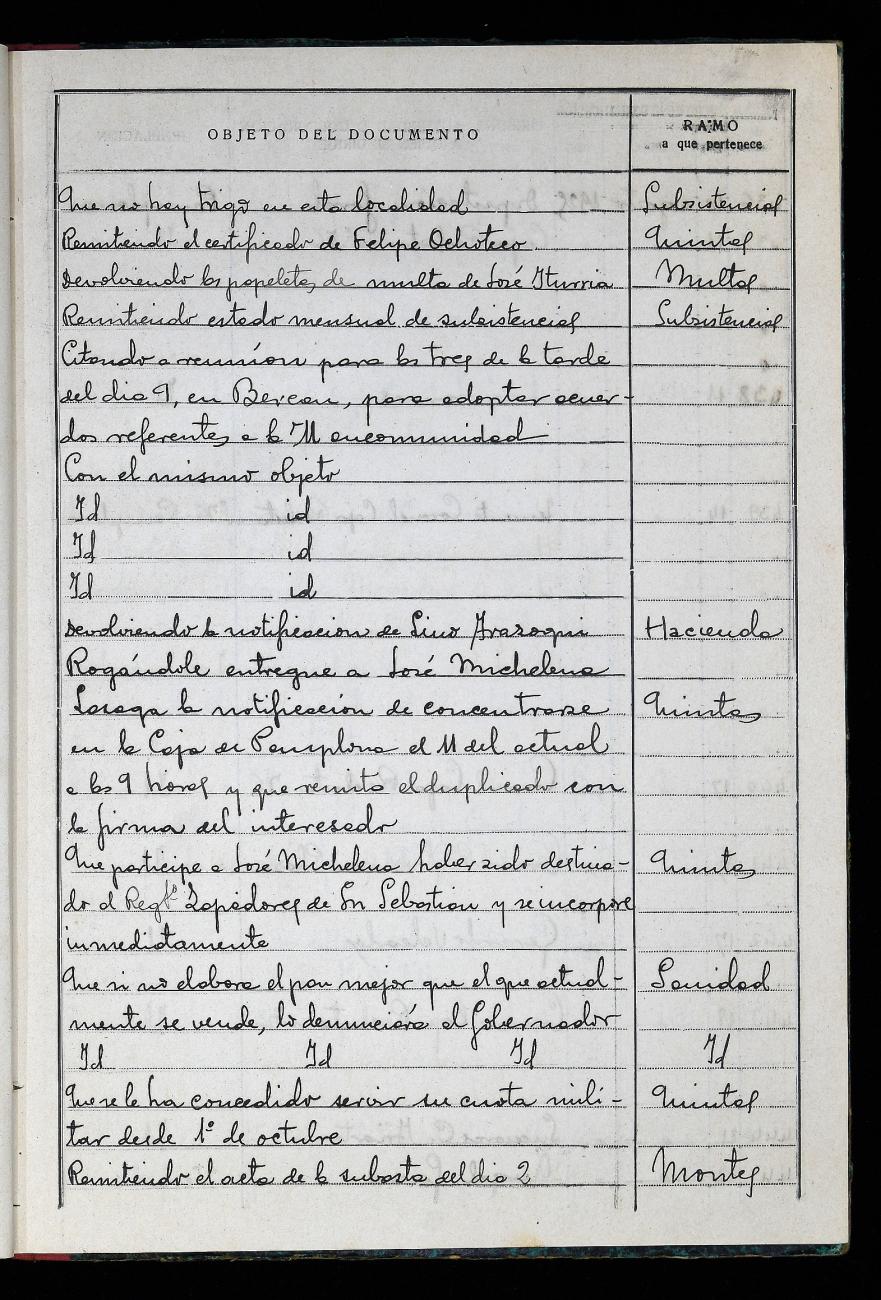 OBJETO DEL DOCUMENTO
RAMO
a que pertenece
Que no hay trigo en esta localidad Subsistencias
Remitiendo el certificado de Felipe Ochoteco Quintas
Devolviendo las papeletas de multa de José Iturria Multas
Remitiendo estado mensual de subsistencias Subsistencias
Citando a reunion para las tres de la tarde
del dia 9, en Bereau, para adoptar acuer-
dos referentes a la Mancomunidad
Con el mismo objeto
Id id
Id id
Id id
Devolviendo la notificacion de Lino Hacienda
Rogándole entregue a José Michelena
Lasaga la notificación de concentrarse Quintas
en la Caja de Pamplona el 11 del actual
a las 9 horas y que remita el duplicado con
la firma del interesado
Que participe a José Michelena haber sido destina- Quintas
do al Regto Zapadores de Sn Sebastian y se incorpore
inmediatamente
Que si no elabora el pan mejor que el que actual- Sanidad
mente se vende, lo denunciará al Gobernador
Id Id Id Id
Que se le ha concedido servir su cuota mili- Quintas
tar desde 1º de octubre
Remitiendo el acta de la subasta del dia 2 Montes